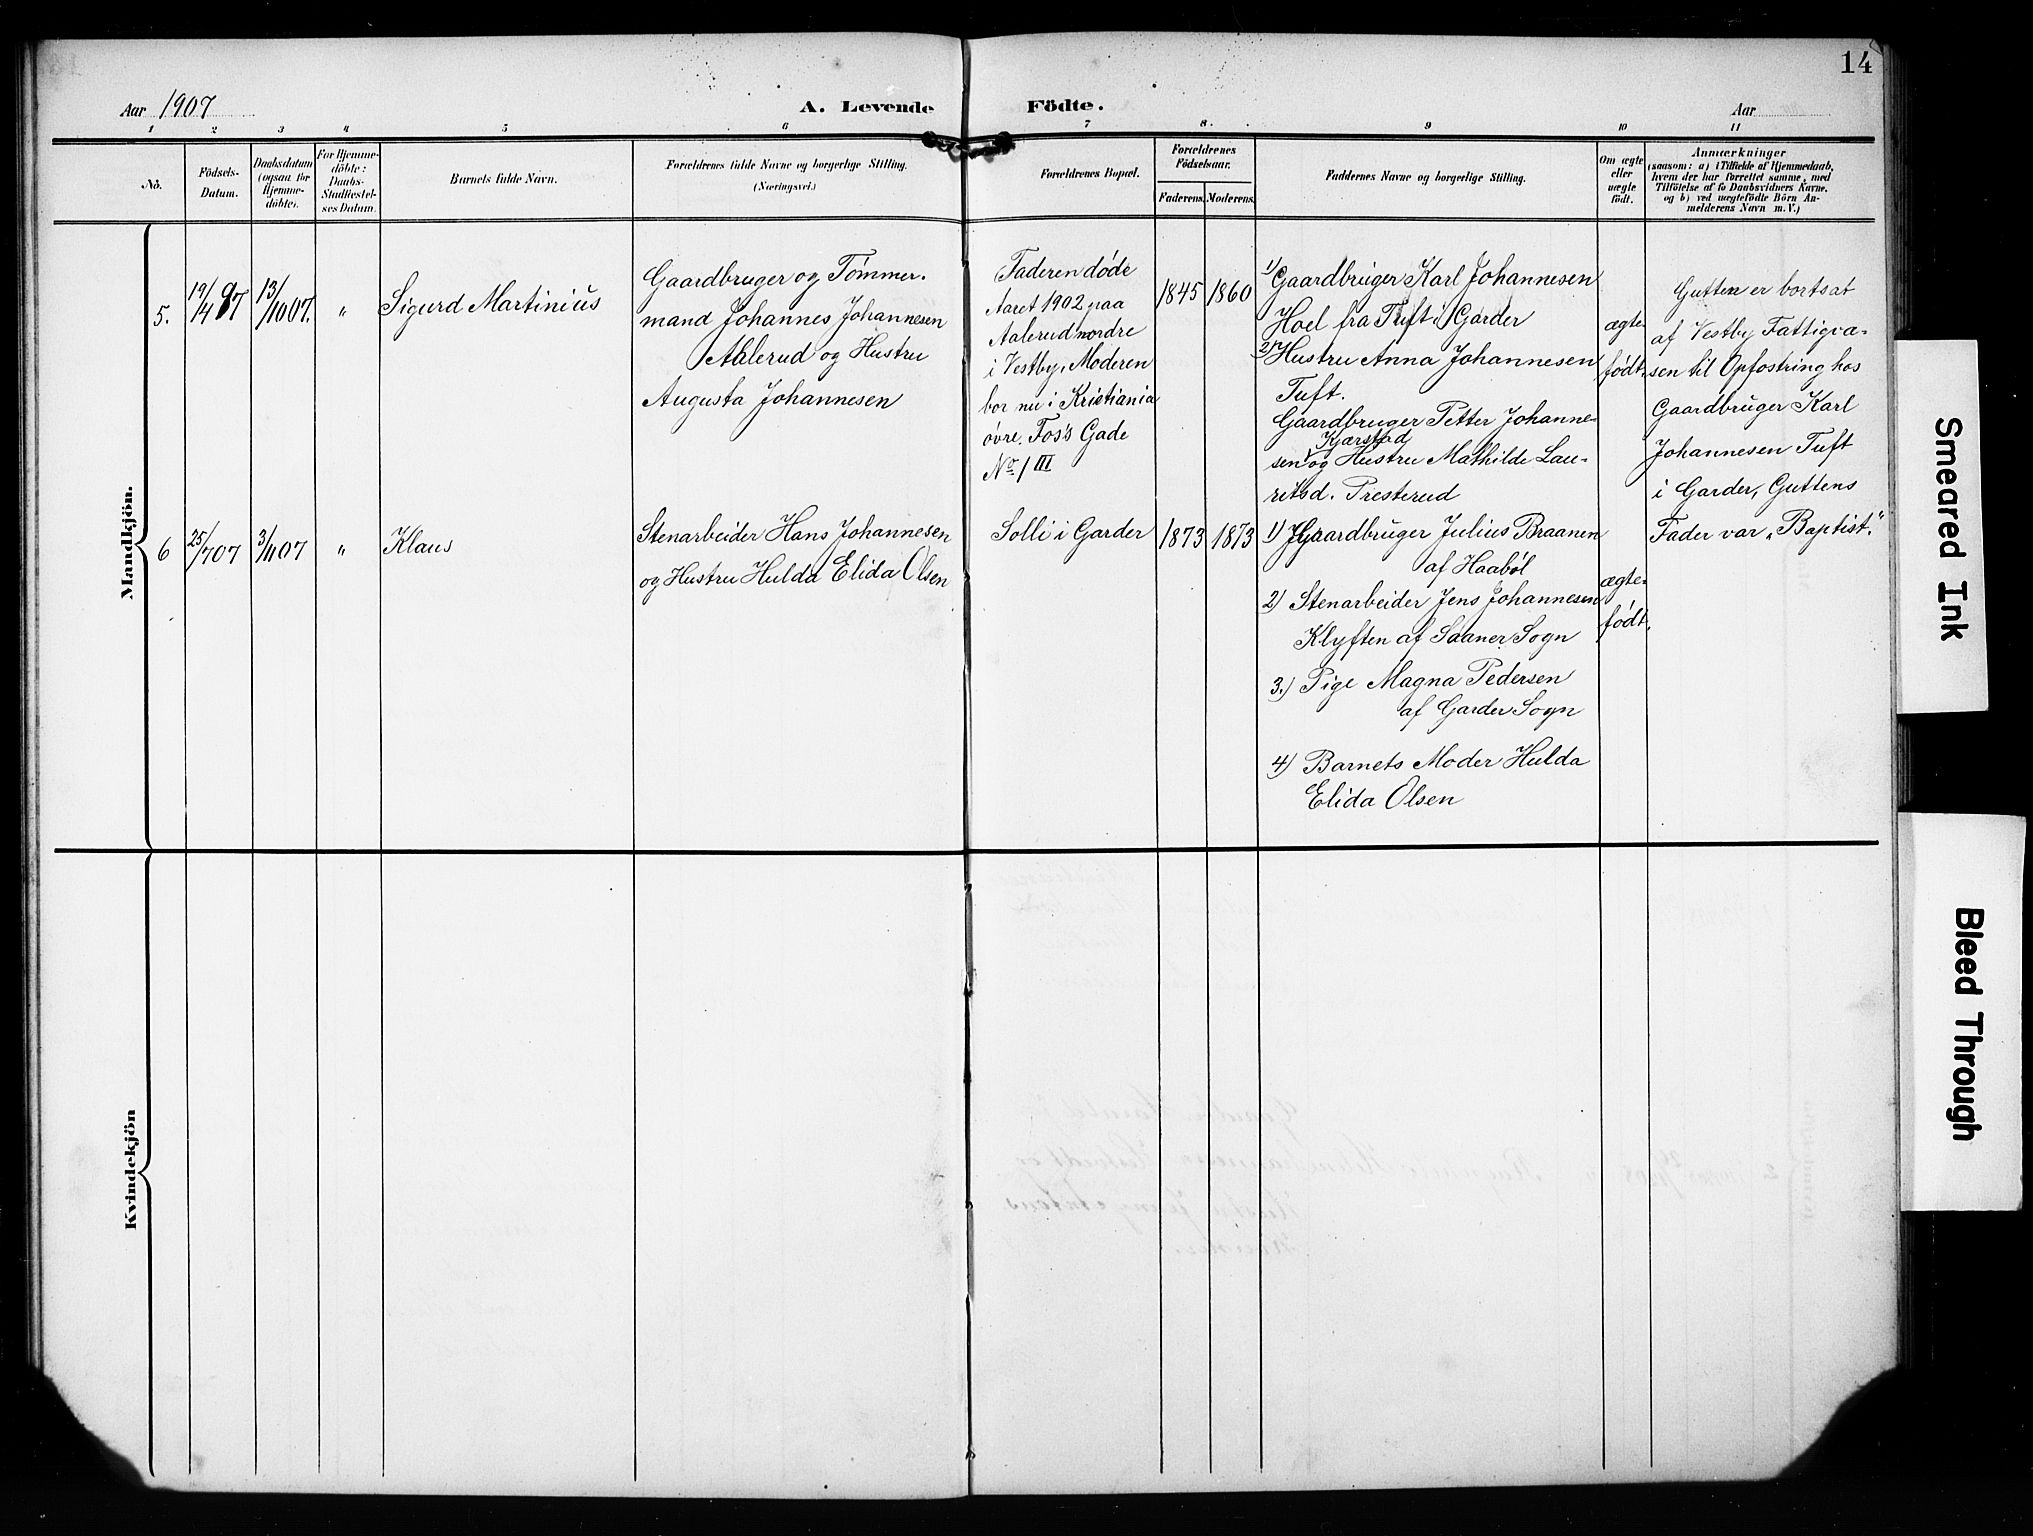 14
Aar 1907
A. Levende Födte.
Aar
1 2 3 4 5 6 7 8. 9 10 11
No.
Födsels-
Datum.
Daabsdatum
(ogsaa for
Hjemme-
döbte).
For Hjemme-
döbte:
Daabs-
Stadfæstel-
ses Datum.
Barnets fulde Navn.
Forældrenes fulde Navne og borgerlige Stilling.
(Næringsvei.)
Forældrenes Bopæl.
Forældrenes
Födselsaar.
Faderens. Moderens.
Faddernes Navne og borgerlige Stilling.
Om ægte
eller
uægte
födt.
Anmærkninger
(saasom: a) i Tilfælde af Hjemmedaab,
hvem der har forrettet samme, med
Tilföielse af to Daabsvidners Navne,
og b) ved uægtefödte Börn An-
melderens Navn m. V.)
Mandkjön.
5.
19/4 97
13/10 07.
"
Sigurd Martinius
Gaardbruger og Tømmer-
mand Johannes Johannesen
Aalerud og Hustru
Augusta Johannesen
Faderen døde
Aaret 1902 paa
Aalerud nordre
i Vestby, Moderen
bor nu i Kristiania
øvre Fos's Gade
No 1 III
1845
1860
1) Gaardbruger Karl Johannesen
Hoel fra Tuft i Garder
2) Hustru Anna Johannesen
Tuft.
Gaardbruger Petter Johanne-
Kjærstad
sen og Hustru Mathilde Lau-
ritsd. Presterud
ægte-
født.
Gutten er bortsat
af Vestby Fattigvæ-
sen til Opfostring hos
Gaardbruger Karl
Johannesen Tuft
i Garder, Guttens
Fader var „Baptist."
6
25/7 07
3/11 07
"
Klaus
Stenarbeider Hans Johannesen
og Hustru Hulda Elida Olsen
Solli i Garder
1873
1873
1) Gaardbruger Julius Braanen
af Haabøl
2) Stenarbeider Jens Johannesen
Klyften af Saaner Sogn
3.) Pige Magna Pedersen
af Garder Sogn
4) Barnets Moder Hulda
Elida Olsen
ægte-
født.
Kvindekjön
Smeared Ink
Bleed Through